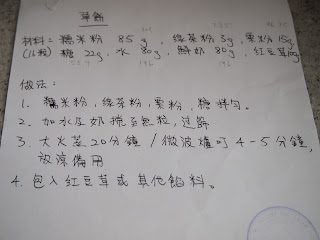 草餅
材料: 糯米粉 85g, 綠茶粉 5g, 粟粉 15g
(16粒) 糖 22g, 水 80g, 鮮奶 80g, 紅豆茸
做法:
1. 糯米粉,綠茶粉,粟粉,糖拌勻。
2. 加水及奶攪至無粒,過篩
3. 大火蒸20分鐘 / 微波爐叮 4-5分鐘,
放涼備用
4. 包入紅豆茸或其他餡料。